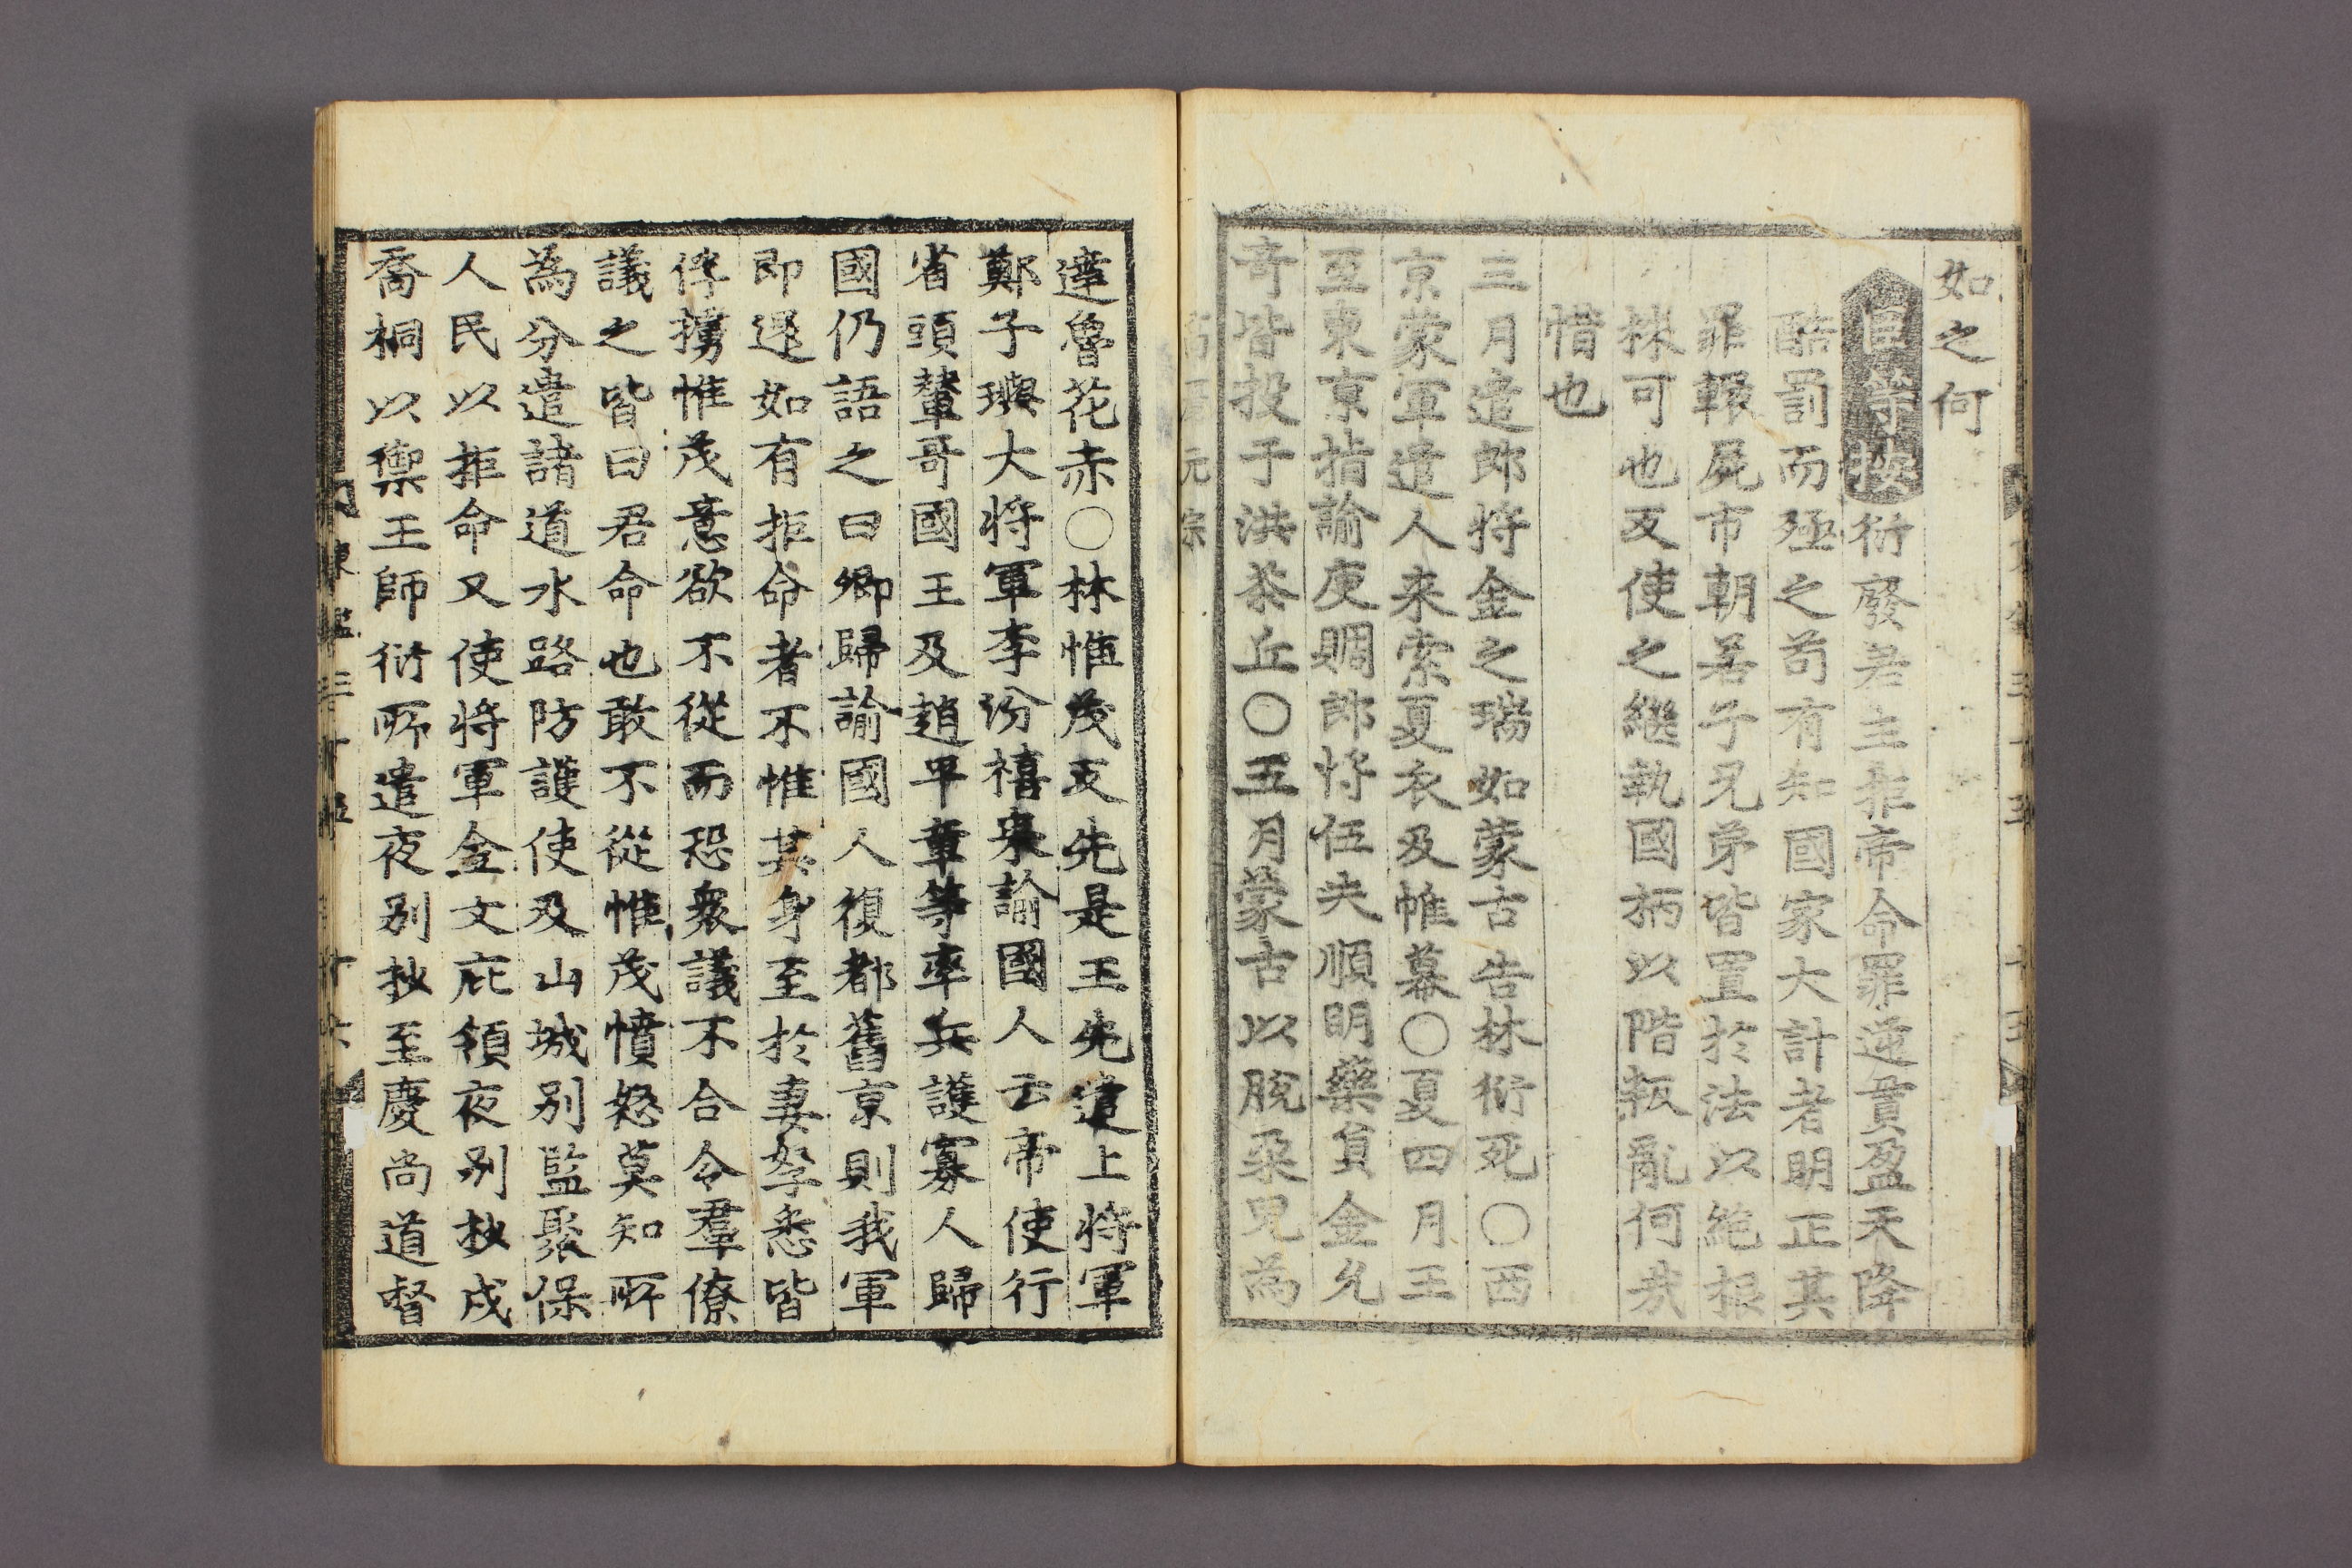 如之何
臣等按衍廢君主拒帝命罪逆貫盈天降
酷罰而殛之苟有知國家大計者明正其
罪轘屍市朝若子兄弟皆置於法以絶根
株可也反使之繼執國柄以階叛亂何哉
惜也
三月遣郎將金之瑞如蒙古告林衍死〇西
京蒙軍遣人来索夏衣及帷幕〇夏四月王
至東京指諭庾賙郎將伍夫順明藥員金允
奇皆投于洪茶丘〇五月蒙古以脫朶兒為
高麗元宗
達魯花赤〇林惟茂反先是王先遣上將軍
鄭子璵大將軍李汾禧来諭國人云帝使行
省頭輦哥國王及趙平章等率兵護寡人歸
國仍語之曰卿歸諭國人復都舊京則我軍
即還如有拒命者不惟其身至於妻孥悉皆
俘擄惟茂意欲不從而恐衆議不合令羣僚
議之皆曰君命也敢不從惟茂憤怒莫知所
為分遣諸道水路防護使及山城別監聚保
人民以拒命又使將軍金文庇領夜別抄戍
喬桐以禦王師衍所遣夜別抄至慶尚道督